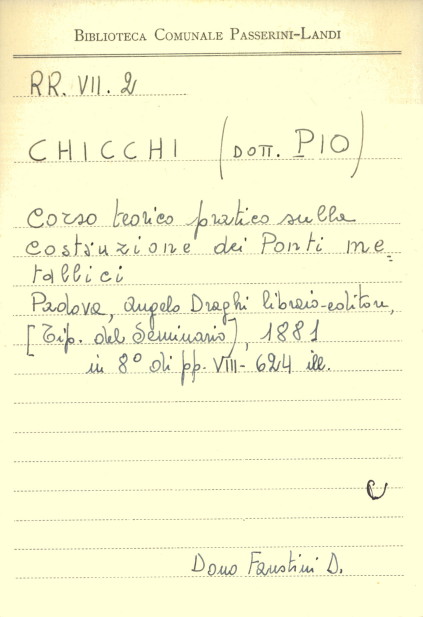 BIBLIOTECA COMUNALE PASSERINI-LANDI
RR. VII. 2
CHICCHI (DOTT. PIO)
Corso teorico pratico sulla
costruzione dei Ponti me=
tallici
Padova, Angelo Draghi libraio-editore,
[Tip. del Seminario], 1881
in 8° di pp. VIII-624 ill.
C
Dono Faustini D.